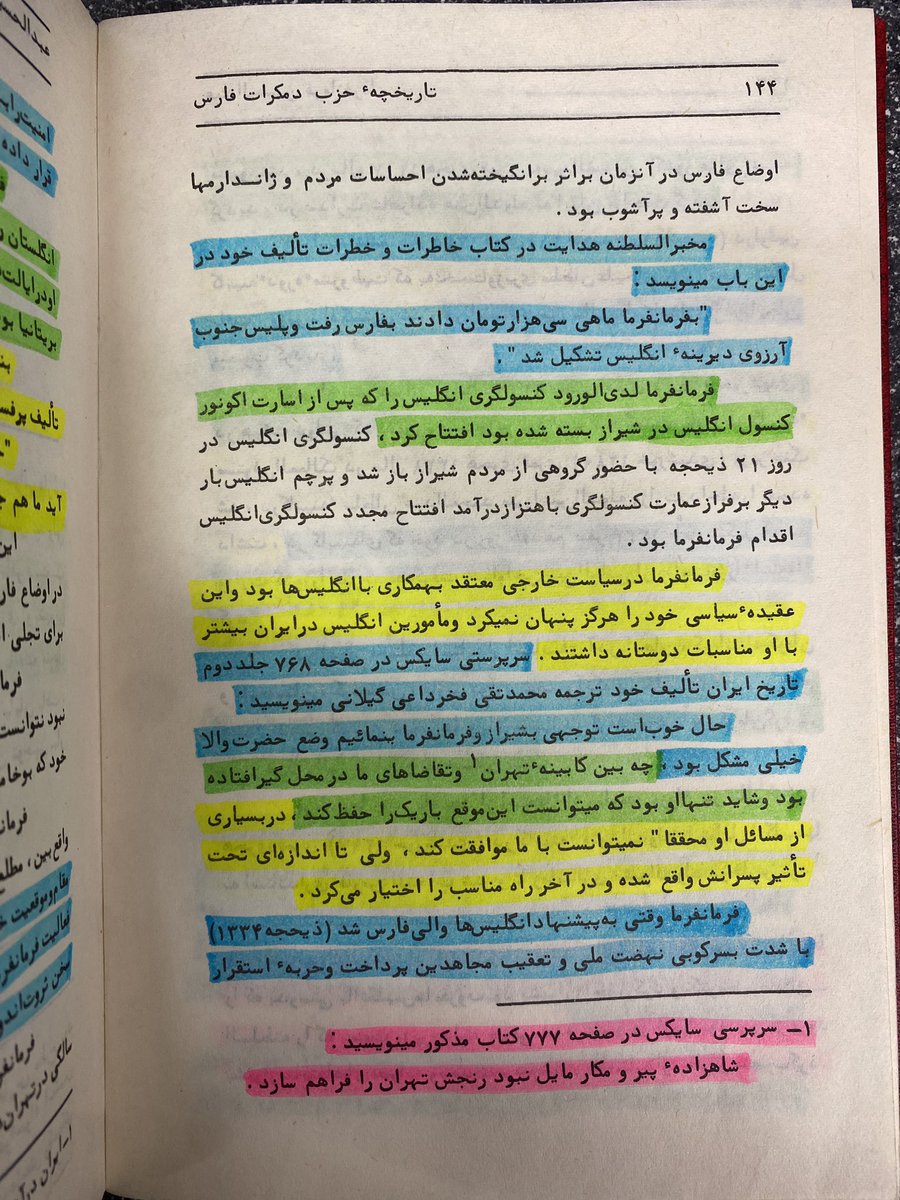 ۱۴۴
تاریخچهٔ حزب دمکرات فارس
اوضاع فارس در آنزمان براثر برانگیخته‌شدن احساسات مردم و ژاندارمها
سخت آشفته و پرآشوب بود .
مخبرالسلطنه هدایت در کتاب خاطرات و خطرات تألیف خود در
این باب مینویسد :
"بفرمانفرما ماهی سی‌هزارتومان دادند بفارس رفت وپلیس‌جنوب
آرزوی دیرینهٔ انگلیس تشکیل شد " .
فرمانفرما لدی‌الورود کنسولگری انگلیس را که پس از اسارت اکونور
کنسول انگلیس در شیراز بسته شده بود افتتاح کرد ، کنسولگری انگلیس در
روز ۲۱ ذیحجه با حضور گروهی از مردم شیراز باز شد و پرچم انگلیس‌بار
دیگر برفرازعمارت کنسولگری باهتزازدرآمد افتتاح مجدد کنسولگری‌انگلیس
اقدام فرمانفرما بود .
فرمانفرما درسیاست خارجی معتقد بهمکاری باانگلیس‌ها بود واین
عقیدهٔ سیاسی خود را هرگز پنهان نمیکرد ومأمورین انگلیس درایران بیشتر
با او مناسبات دوستانه داشتند . سرپرستی سایکس در صفحه ۷۶۸ جلد دوم
تاریخ ایران تألیف خود ترجمه محمدتقی فخرداعی گیلانی مینویسید :
حال خوب‌است توجهی بشیراز وفرمانفرما بنمائیم وضع حضرت‌والا
خیلی مشکل بود ، چه بین کابینهٔ تهران۱ وتقاضاهای ما درمحل گیرافتاده
بود وشاید تنهااو بود که میتوانست این‌موقع باریک‌را حفظ‌کند ، دربسیاری
از مسائل او محققا" نمیتوانست با ما موافقت کند ، ولی تا اندازه‌ای تحت
تأثیر پسرانش واقع شده و در آخر راه مناسب را اختیار می‌کرد .
فرمانفرما وقتی به‌پیشنهادانگلیس‌ها والی‌فارس شد (ذیحجه۱۳۳۴)
با شدت بسرکوبی نهضت ملی و تعقیب مجاهدین پرداخت وحربهٔ استقرار
۱– سرپرسی سایکس در صفحه ۷۷۷ کتاب مذکور مینویسید :
شاهزادهٔ پیر و مکار مایل نبود رنجش تهران را فراهم سازد .
امنیت‌را
قرار داده
انگلستان
بریتانیا
آید ما هم
این
دراوضاع
برای تجلی
نبود نتوانست
خود که
واقع‌بین ، مطلع
مقام‌وموقعیت
فعالیت فرمانفر